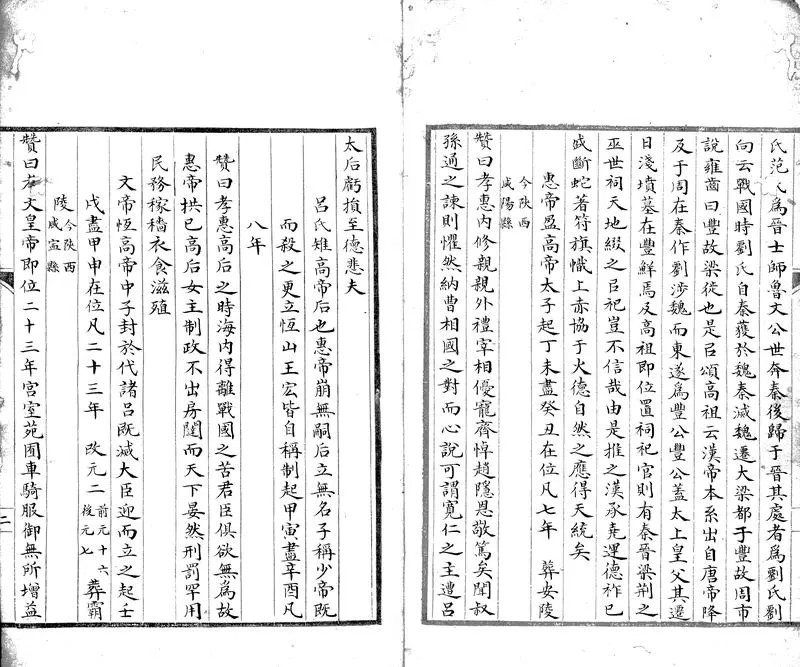 氏范氏為晉士師魯文公世奔秦後歸于晉其處者為劉氏劉
向云戰國時劉氏自秦獲於魏秦滅魏遷大梁都于豐故周市
說雍齒曰豐故梁徙也是㠯頌高祖云漢帝本系出自唐帝降
及于周在秦作劉涉魏而東遂為豐公豐公蓋太上皇父其遷
日淺墳墓在豐鮮焉及高祖即位置祠祀官則有秦晉梁荆之
巫世祠天地綴之㠯祀豈不信哉由是推之漢承堯運德祚已
盛斷蛇著符旗幟上赤協于火德自然之應得天統矣
惠帝盈高帝太子起丁未盡癸丑在位凡七年 葬安陵
今陜西
咸陽縣
贊曰孝惠內修親親外禮宰相優寵齊悼趙隱恩敬篤矣聞叔
孫通之諫則懼然納曹相國之對而心說可謂寬仁之主遭呂
太后虧損至德悲夫
呂氏雉高帝后也惠帝崩無嗣后立無名子稱少帝既
而殺之更立恆山王宏皆自稱制起甲寅盡辛酉凡
八年
贊曰孝惠高后之時海內得離戰國之苦君臣俱欲無為故
惠帝拱已高后女主制政不出房闥而天下晏然刑罰罕用
民務稼穡衣食滋殖
文帝恆高帝中子封於代諸呂既滅大臣迎而立之起壬
戌盡甲申在位凡二十三年 改元二 前元十六 後元七 葬霸
陵 今陜西 咸寧縣
贊曰孝文皇帝即位二十三年宫室苑囿車騎服御無所增益